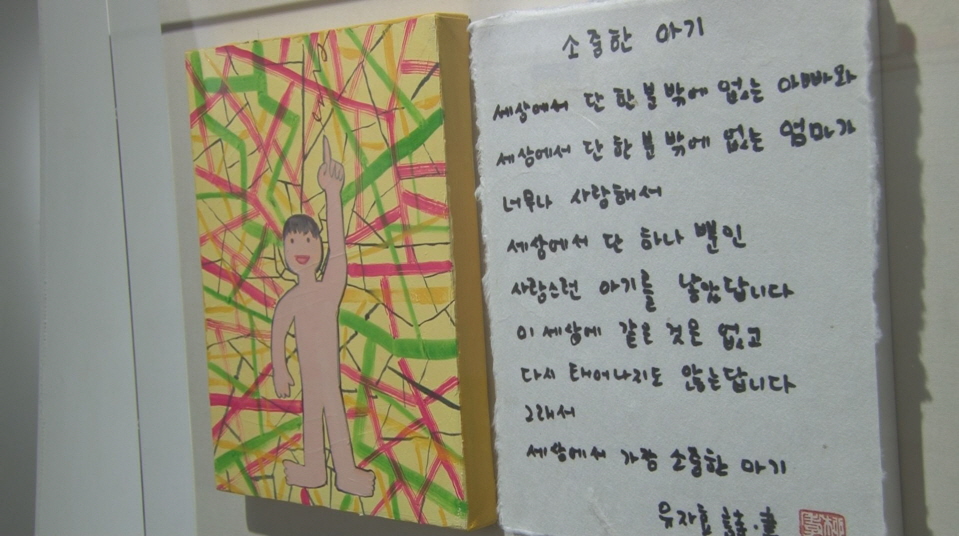 소중한 아기
세상에서 단 한 분 밖에 없는 아빠와
세상에서 단 한 분 밖에 없는 엄마가
너무나 사랑해서
세상에서 단 하나 뿐인
사랑스런 아기를 낳았답니다
이 세상에 같은 것은 없고
다시 태어나지도 않는답니다
그래서
세상에서 가장 소중한 아기
유자효